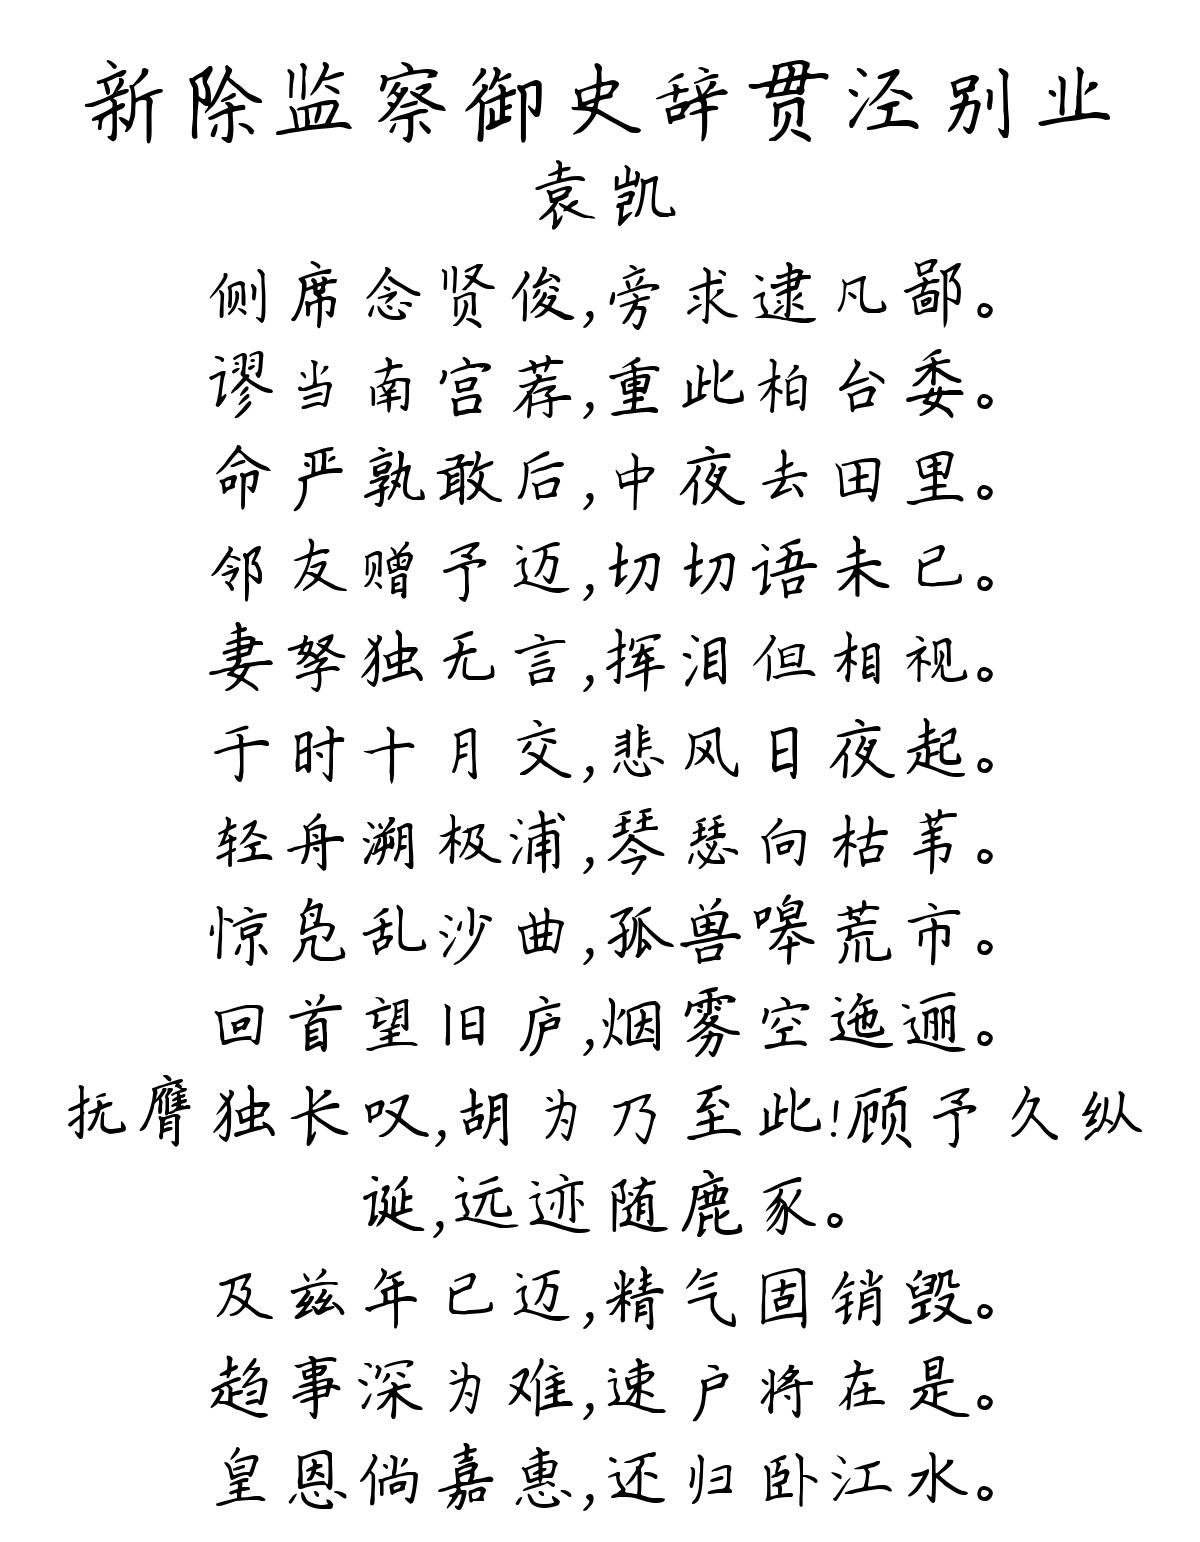 新除监察御史辞贯泾别业
袁凯
侧席念贤俊,旁求逮凡鄙。
谬当南宫荐,重此柏台委。
命严孰敢后,中夜去田里。
邻友赠予迈,切切语未已。
妻孥独无言,挥泪但相视。
于时十月交,悲风日夜起。
轻舟溯极浦,琴瑟向枯苇。
惊凫乱沙曲,孤兽嗥荒市。
回首望旧庐,烟雾空迤逦。
抚膺独长叹,胡为乃至此!顾予久纵
诞,远迹随鹿豕。
及兹年已迈,精气固销毁。
趋事深为难,速户将在是。
皇恩倘嘉惠,还归卧江水。